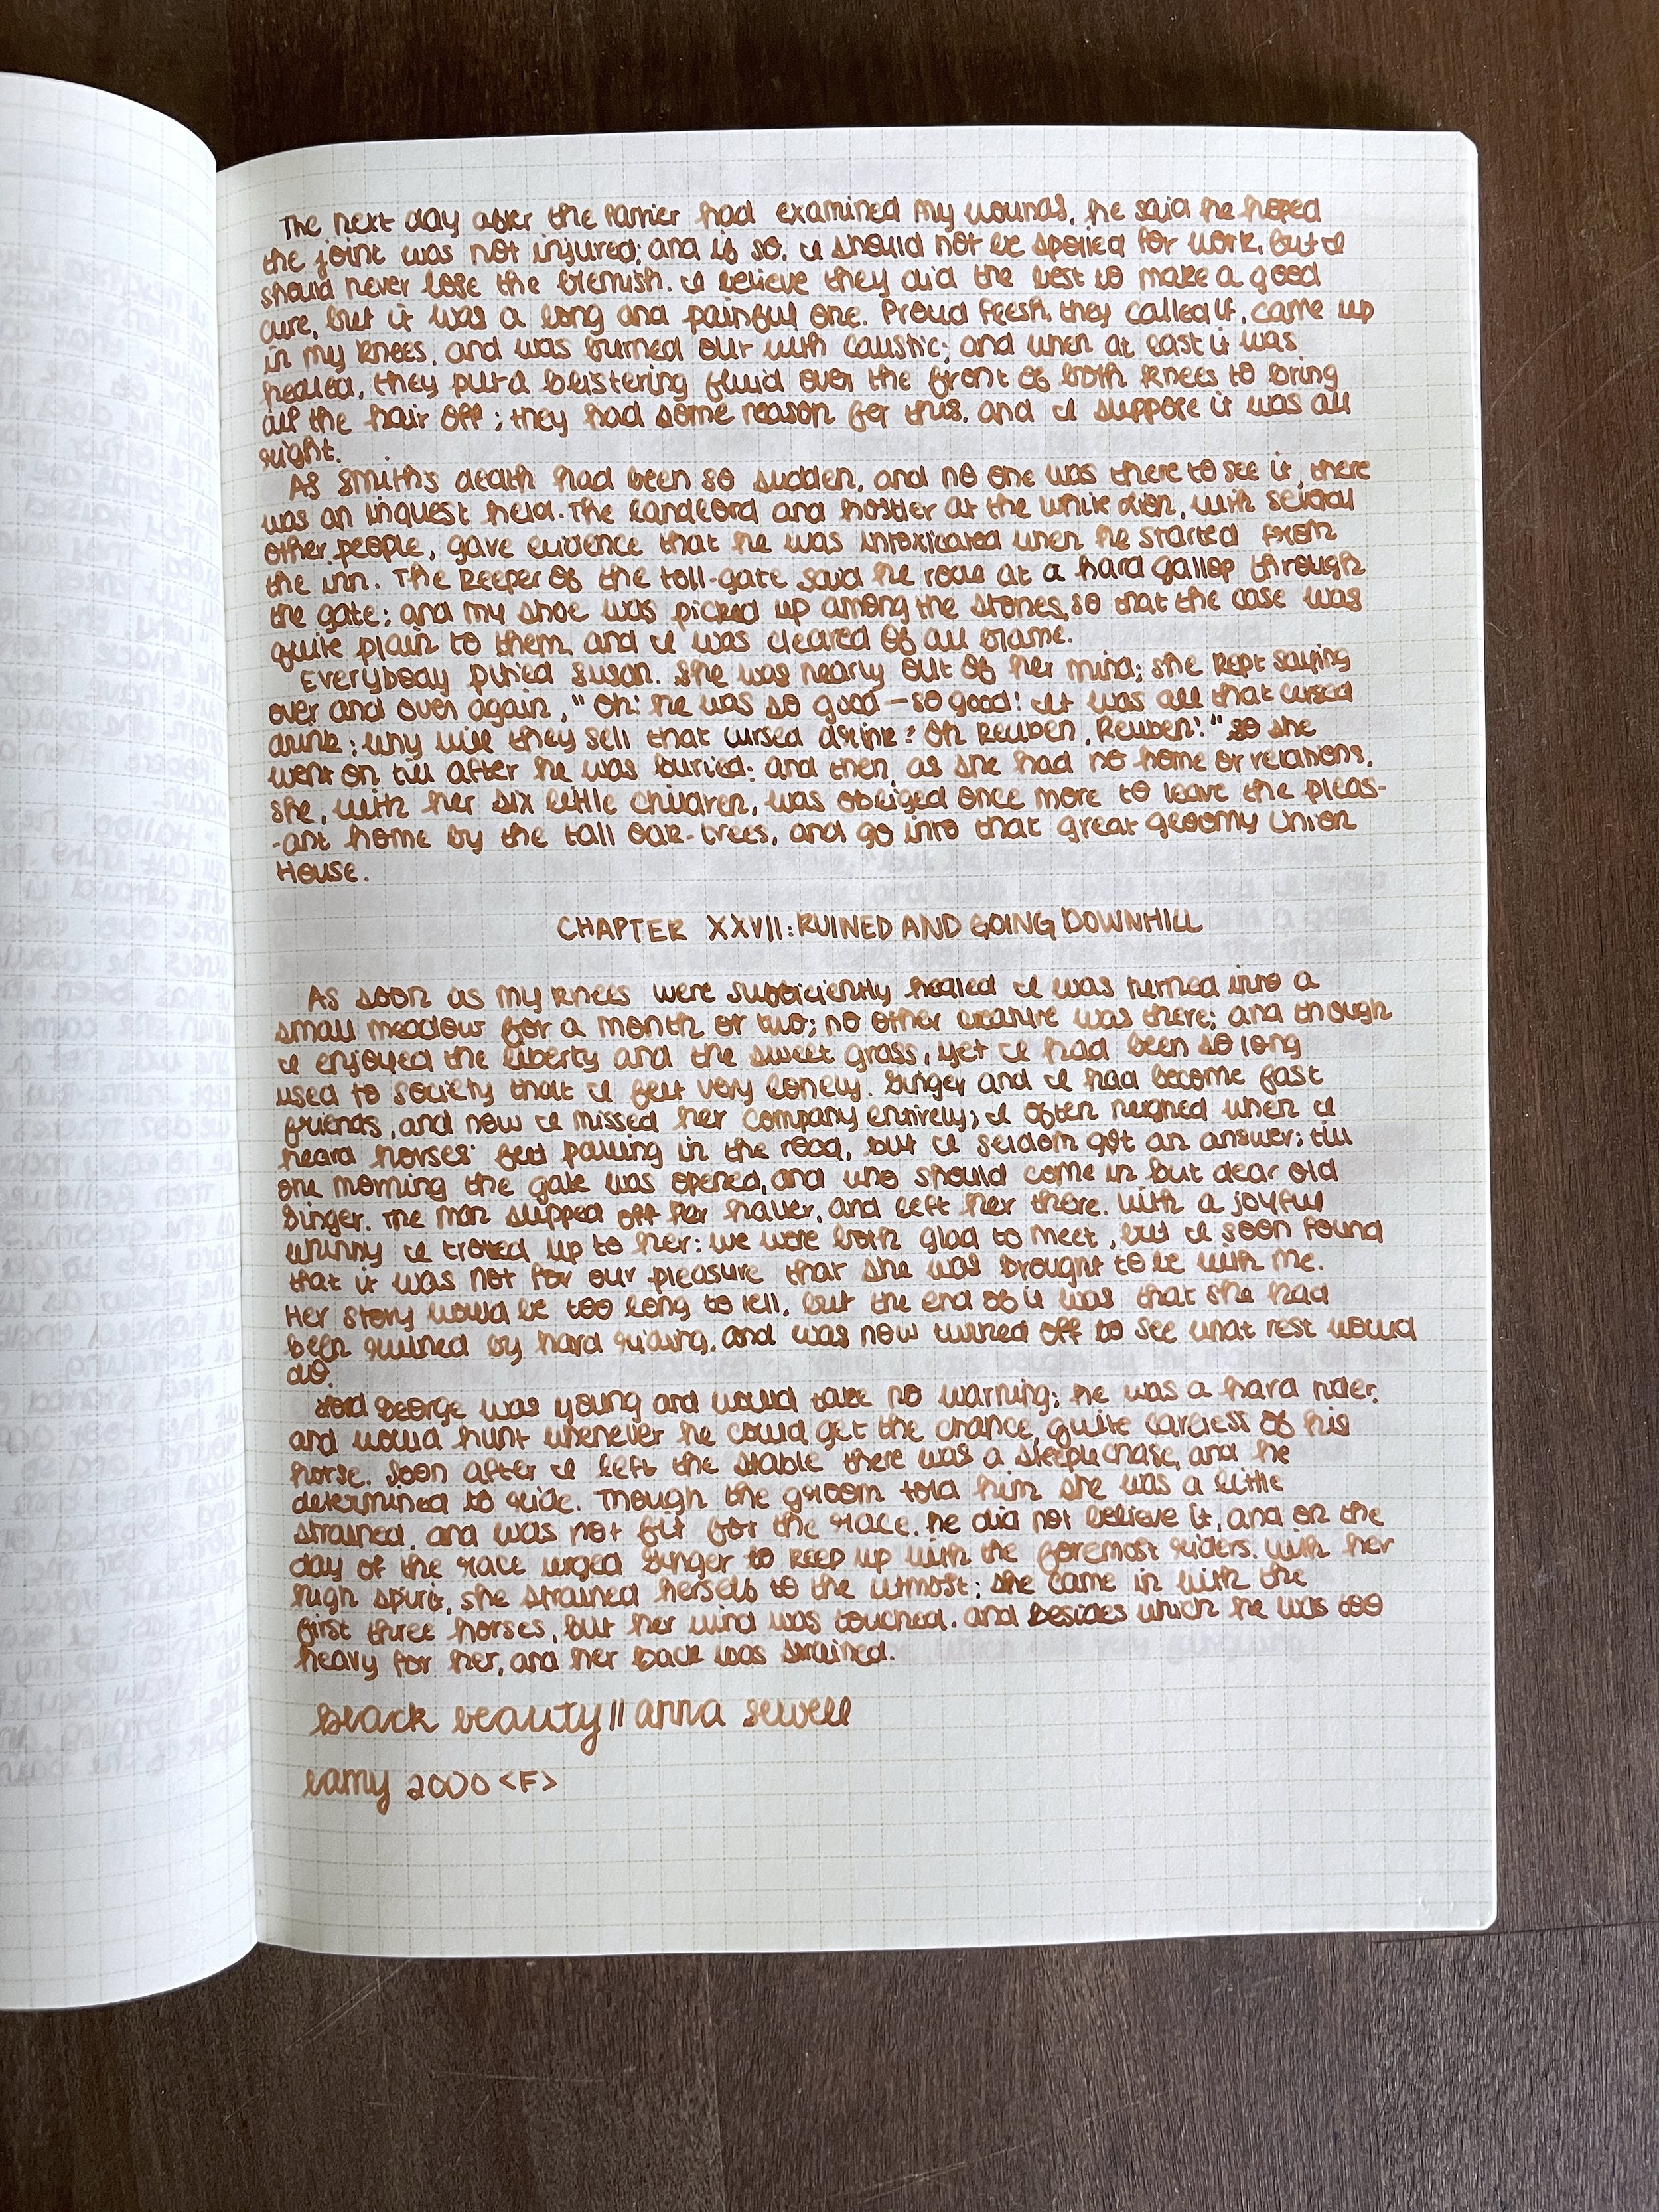 The next day after the farrier had examined my wounds, he said he hoped
the joint was not injured; and if so, I should not be spoiled for work, but I
should never lose the blemish. I believe they did the best to make a good
cure, but it was a long and painful one. Proud flesh, they called it, came up
in my knees, and was burned out with caustic; and when at last it was
healed, they put a blistering fluid over the front of both knees to bring
all the hair off; they had some reason for this, and I suppose it was all
right.
As Smith's death had been so sudden, and no one was there to see it, there
was an inquest held. The landlord and hostler at the White Lion, with several
other people, gave evidence that he was intoxicated when he started from
the inn. The keeper of the toll-gate said he rode at a hard gallop through
the gate; and my shoe was picked up among the stones, so that the case was
quite plain to them, and I was cleared of all blame.
Everybody pitied Susan. She was nearly out of her mind; she kept saying
over and over again, "Oh! he was so good—so good! It was all that cursed
drink; why will they sell that cursed drink? Oh Reuben, Reuben!" So she
went on till after he was buried; and then, as she had no home or relations,
she, with her six little children, was obliged once more to leave the pleas-
-ant home by the tall oak-trees, and go into that great gloomy Union
House.
CHAPTER XXVII: RUINED AND GOING DOWNHILL
As soon as my knees were sufficiently healed I was turned into a
small meadow for a month or two; no other creature was there; and though
I enjoyed the liberty and the sweet grass, yet I had been so long
used to society that I felt very lonely. Ginger and I had become fast
friends, and now I missed her company entirely; I often neighed when I
heard horses' feet passing in the road, but I seldom got an answer; till
one morning the gate was opened, and who should come in but dear old
Ginger. The man slipped off her halter, and left her there. With a joyful
whinny I trotted up to her; we were both glad to meet, but I soon found
that it was not for our pleasure that she was brought to be with me.
Her story would be too long to tell, but the end of it was that she had
been ruined by hard riding, and was now turned off to see what rest would
do.
Lord George was young and would take no warning; he was a hard rider,
and would hunt whenever he could get the chance, quite careless of his
horse. Soon after I left the stable there was a steeplechase, and he
determined to ride. Though the groom told him she was a little
strained, and was not fit for the race, he did not believe it, and on the
day of the race urged Ginger to keep up with the foremost riders. With her
high spirit, she strained herself to the utmost; she came in with the
first three horses, but her wind was touched, and besides which he was too
heavy for her, and her back was strained.
black beauty || anna sewell
lamy 2000 <F>